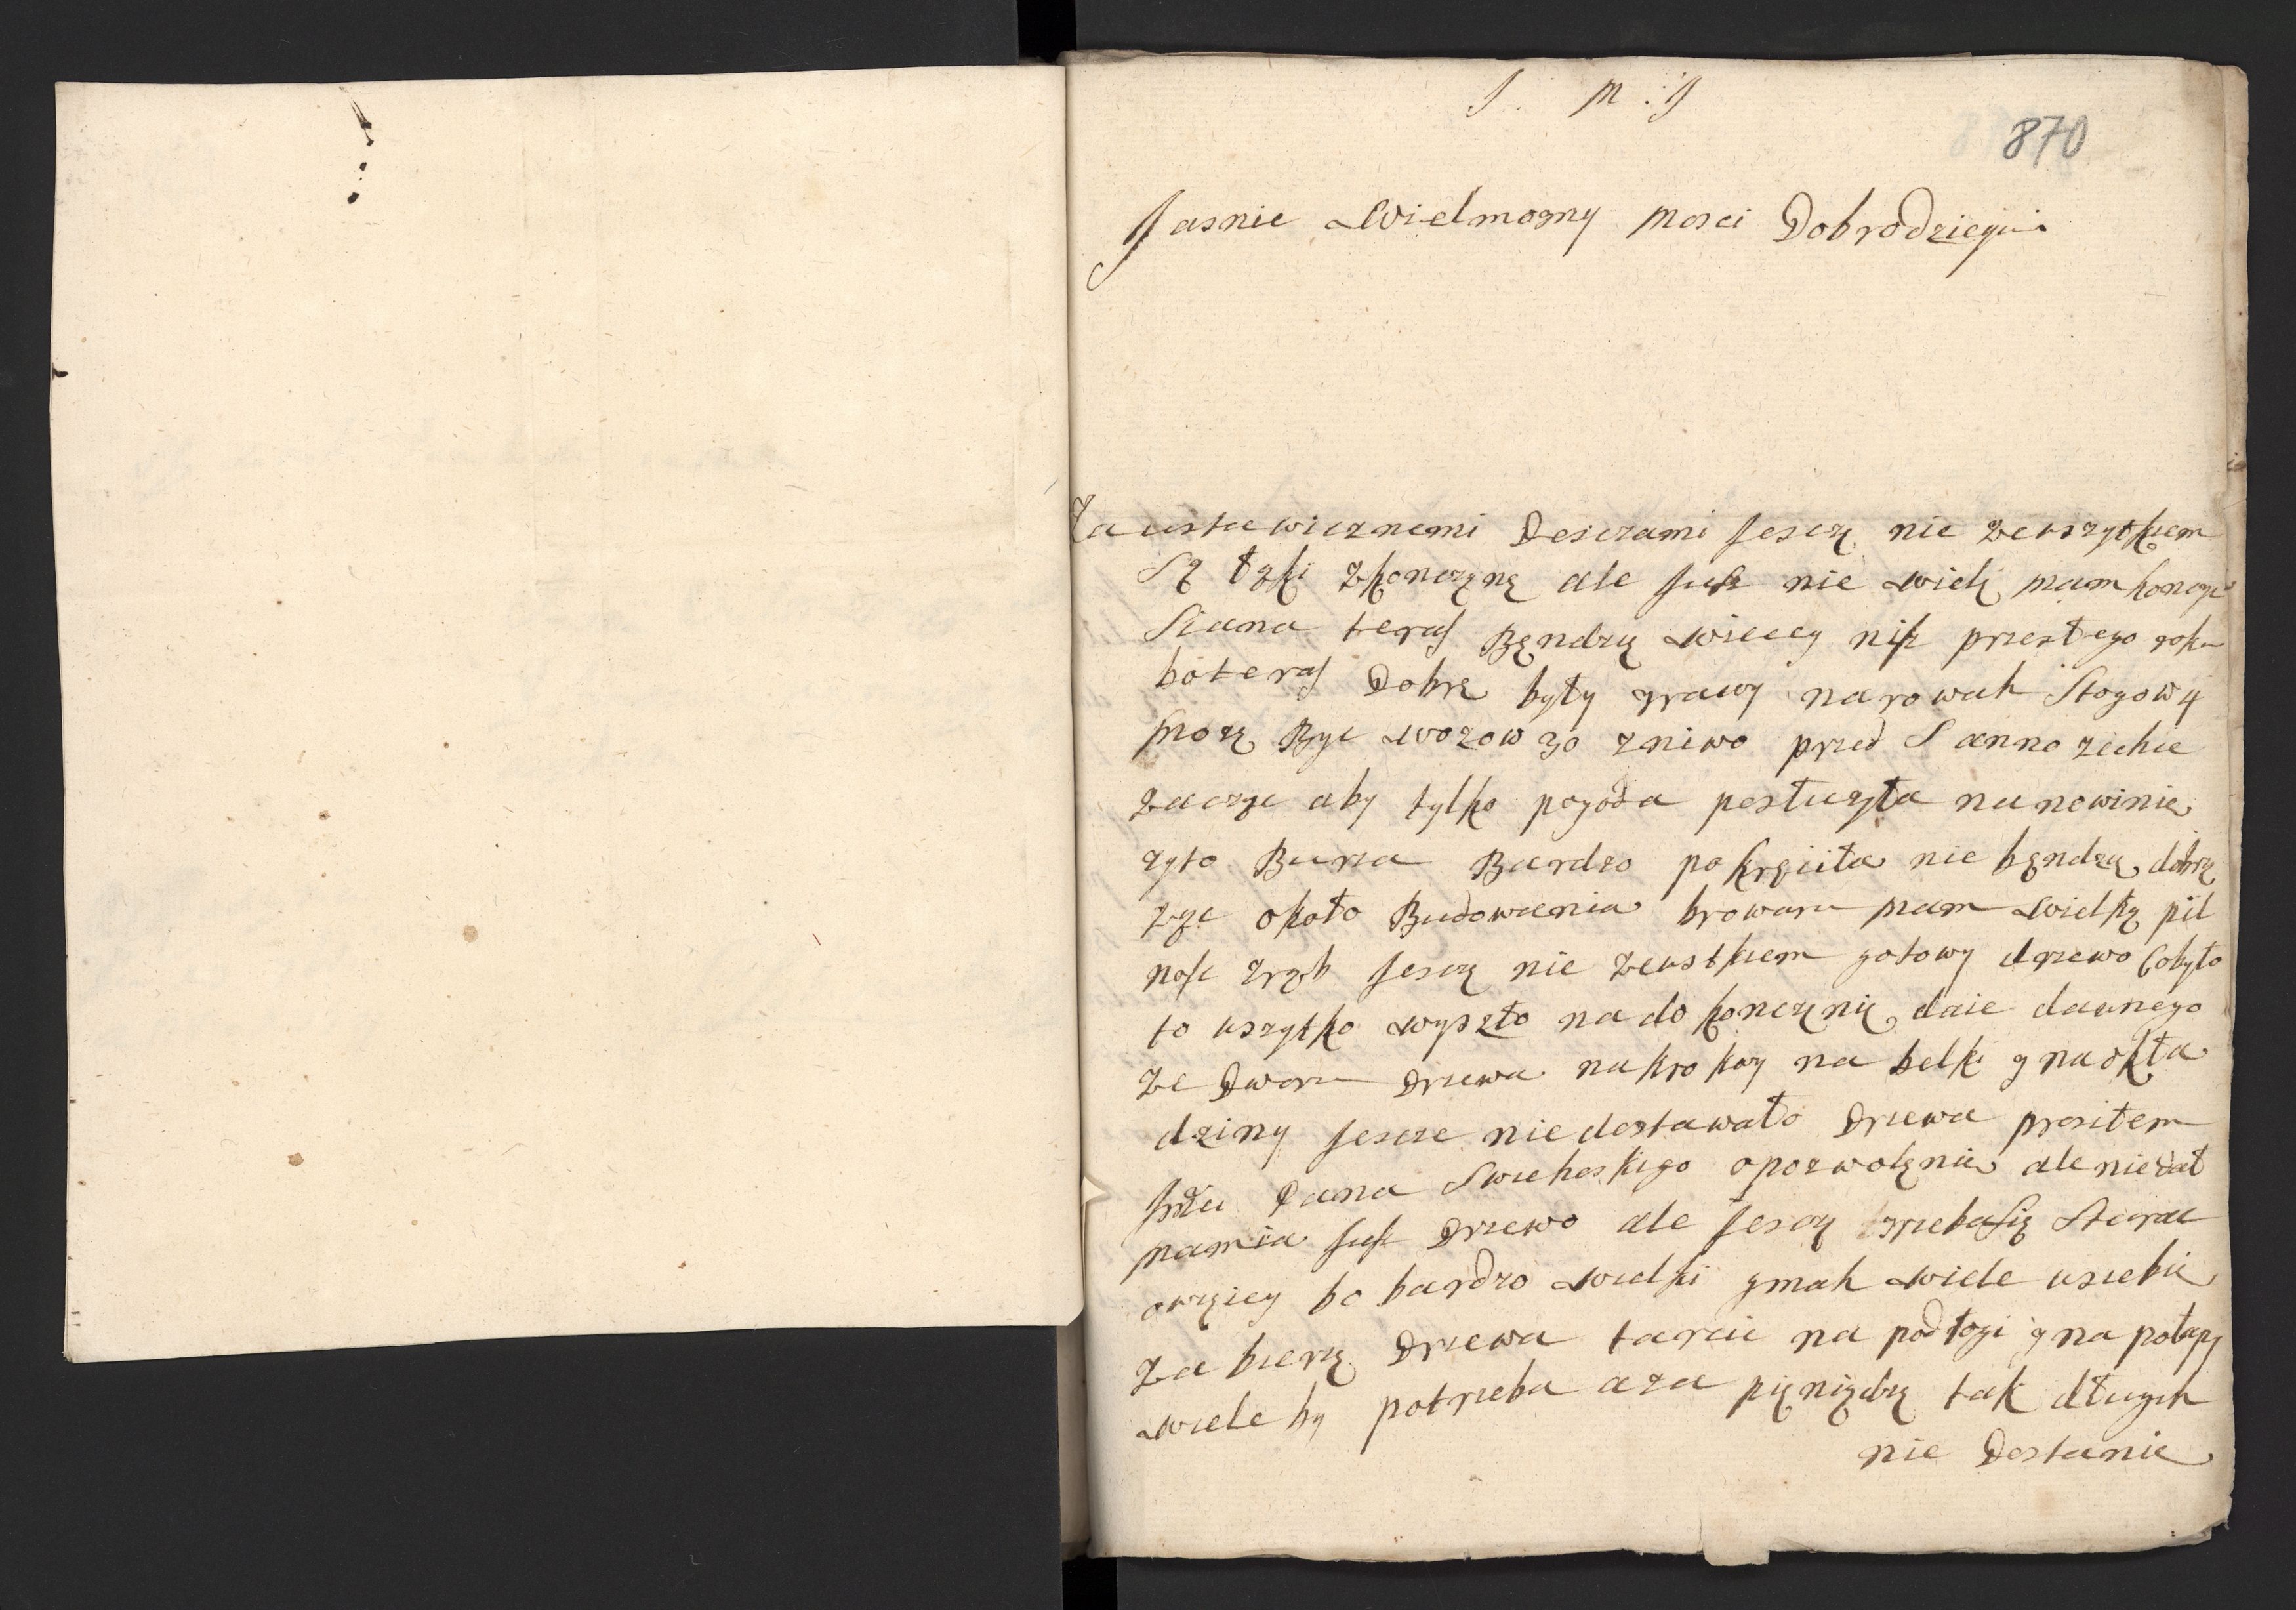 J . M . J
870
Jasnie Wielmozny Mosci Dobrodzieyu
Za ustawicznemi Desczami Jesczę nie zewszytkiem
Są łąki zkonczęnę ale Jusz nie wielę mam konczyc
Siana teras Będzię wiecey nisz przestego roku
bo teras Dobrę były trawy narowah Stogowy
Mozę Byc wozow 30 zniwo przed S anno zechce
zaczyc aby tylko pogoda posłuzyła nanowinie
zyto Burza Bardzo pokręciła nie bęndzię dobrę
zyc około Budowania browaru mam wielkę pil
nosc zrąb Jesczę nie zewstkiem gotowy drzewo cobyło
to wszytko wyszło na do konczęnię daie dawnego
ze Dworu Drzewa nakrokwy na belki y naokła
dziny Jescze niedostawało Drzewa prosiłem
Pana opozwolęnie ale niedał
Jusz Drzewo ale Jesczy trzebasię Starac
owięcy bo bardzo wielki gmah wiele usiebie
zabierzę Drzewa tarcic na podłogi y na połapy
wiele by potrzeba aza pięniędzę tak długich
nie Dostanie